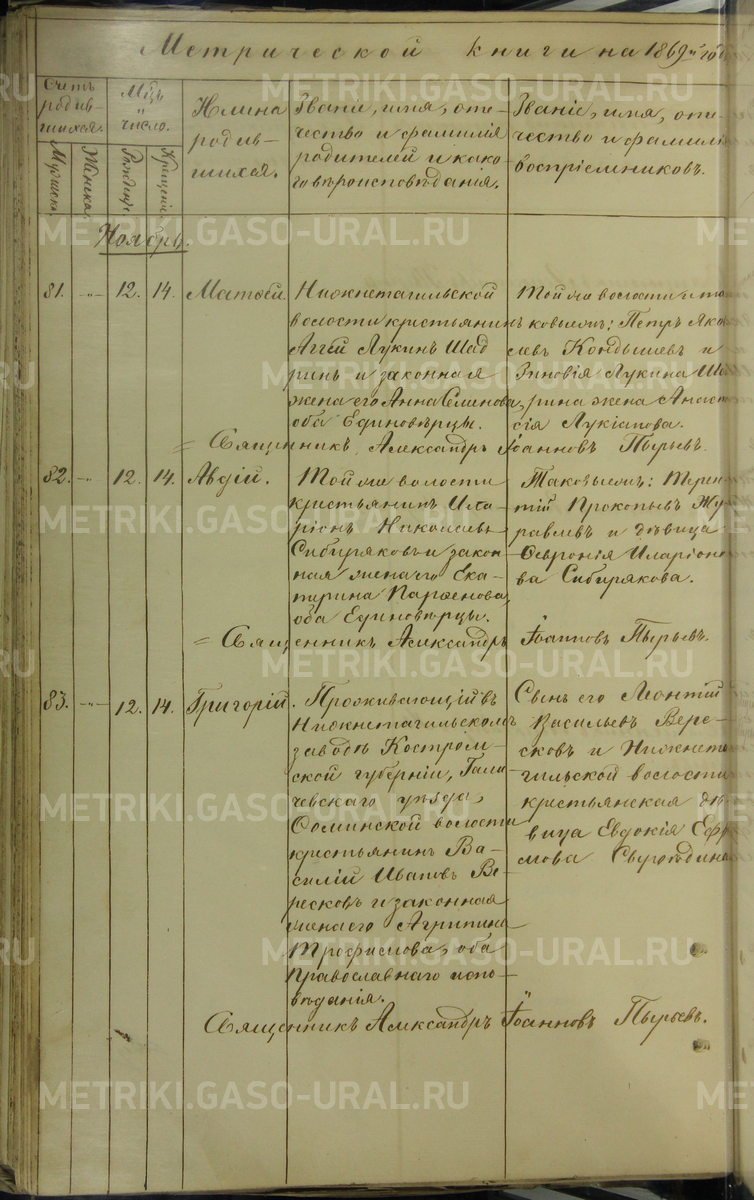 Метрической книги на 1869й годъ
Счетъ родив-шихся.
Мужеска
Женска
Мѣц. и число.
Рожденiя
Крещенiя
Имена родив-шихся.
Званіе, имя, оте-
чество и фамилія
родителей и како-
го вѣроисповѣданія.
Званіе, имя, оте-
чество и фамилія
воспріемниковъ.
Ноябрь.
81. -"- 12. 14. Матѳей.
Нижнетагильской
волости крестьянинъ
Аггей Лукинъ Шад
ринъ и законная
жена его Анна Семенова,
оба Единовѣрцы.
Той же волости и та
ковыежъ: Петръ Яко
левъ Кондышевъ и
Зиновія Лукина Ша
рина жена Анаст
сія Лукіанова.
= Священникъ Александръ Іоанновъ Пырьевъ
82. -"- 12. 14. Авдій.
Той же волости
крестьянинъ Ила-
ріонъ Николаевъ
Сибиряковъ и закон-
ная жена его Ека-
терина Парѳенова,
оба Единовѣрцы.
Таковыежъ: Терен
тій Прокопьевъ Жу
равлевъ и дѣвица
Февронія Иларіоно
ва Сибирякова.
= Священникъ Александръ Іоанновъ Пырьевъ.
83. -"- 12. 14. Григорій.
Проживающій въ
Нижнетагильскомъ
заводѣ Костром-
ской губерніи, Гали
чевскаго уѣзда,
Фоминской волости
крестьянинъ Ва-
силій Ивановъ Ве-
ресковъ и законная
жена его Агрипина
Трофимова, оба
Православнаго испо-
вѣданія.
Сынъ его Леонтій
Васильевъ Вере-
сковъ и Нижнета
гильской волости
крестьянская дѣ
вица Евдокія Ефр
мова
Священникъ Александръ Іоанновъ Пырьевъ.
METRIKI.GASO-URAL.RU